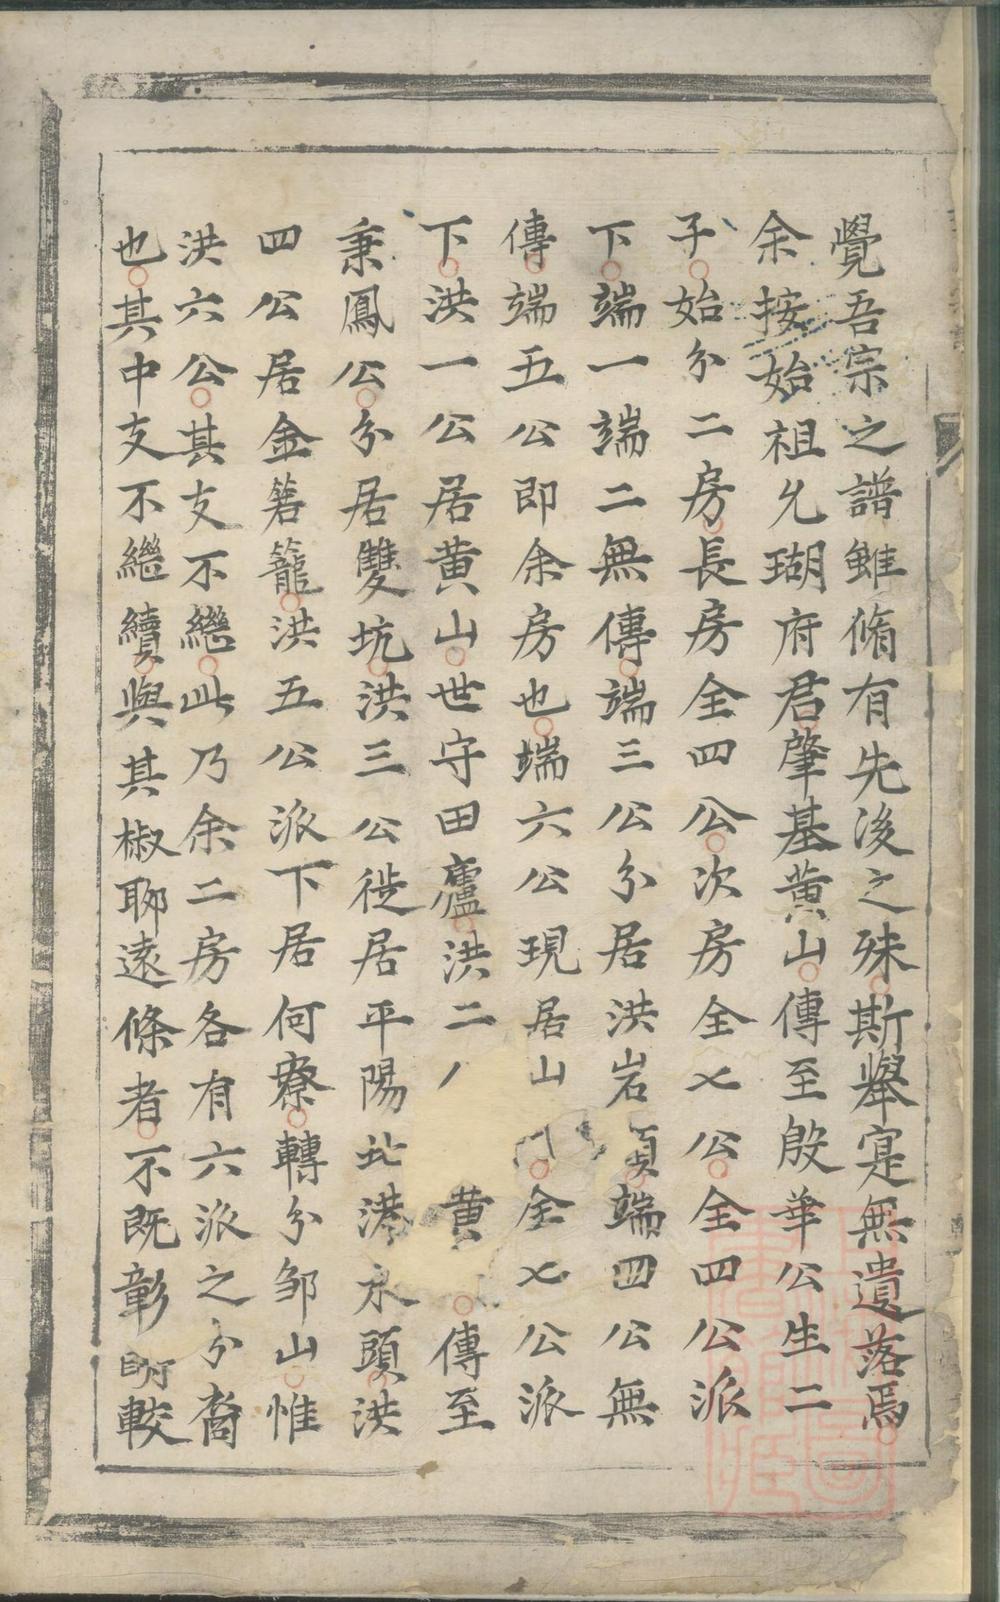 覺吾宗之譜雖脩有先後之殊斯舉寔無遺落焉
余按始祖允瑚府君肇基黄山傳至殷華公生二
子始分二房長房全四公次房全七公全四公派
下端一端二無傳端三公分居洪岩頭端四公無
傳端五公即余房也端六公現居山門全七公派
下洪一公居黄山世守田廬洪二 黄 傳至
秉鳳公分居雙坑洪三公徙居平陽北港水頭洪
四公居金箬籠洪五公派下居何寮轉分邹山惟
洪六公其支不繼此乃余二房各有六派之分裔
也其中支不繼續與其椒聊遠條者不既彰明較